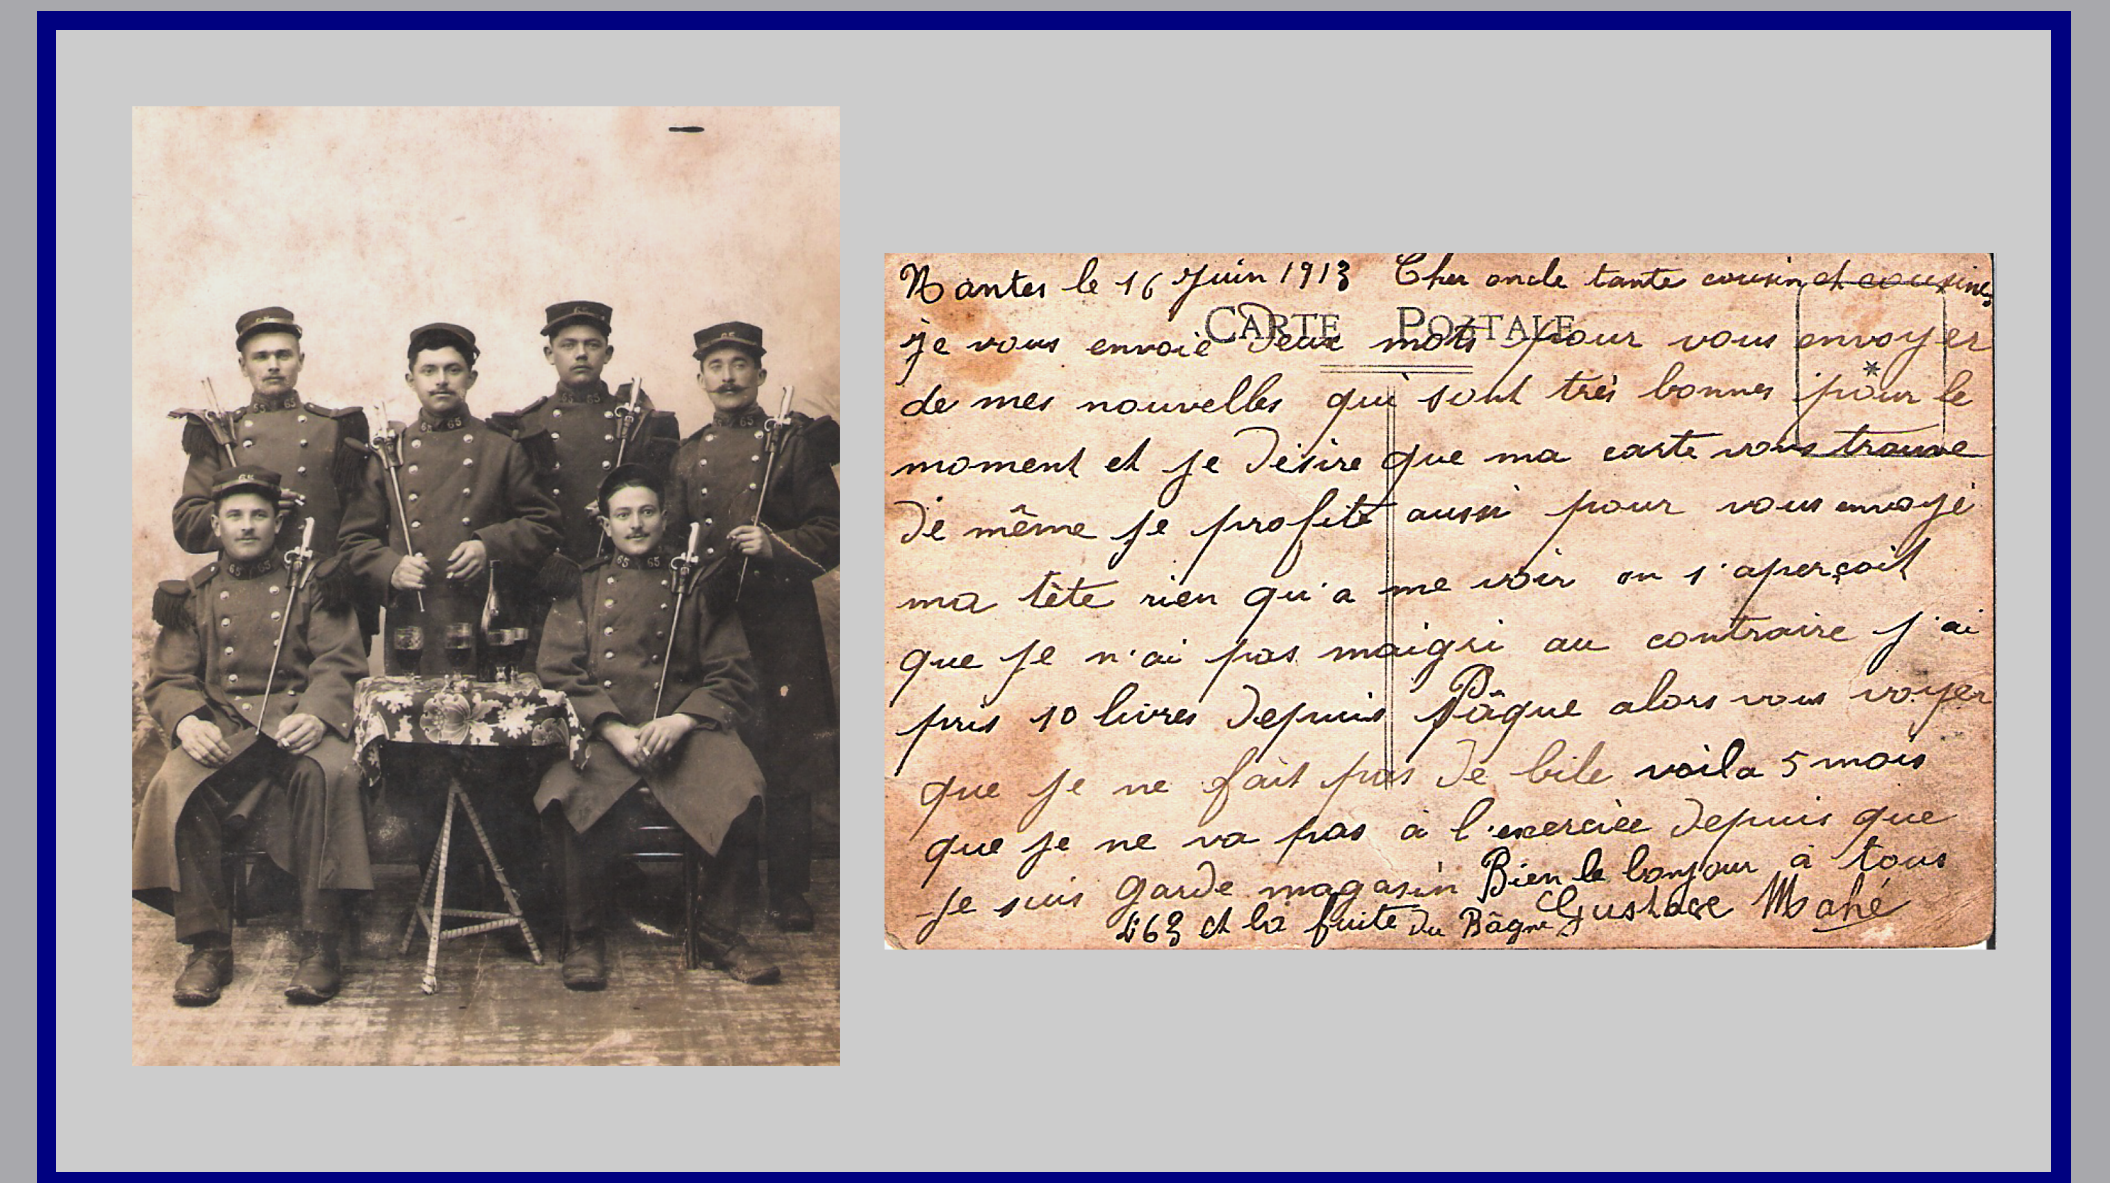 65 65
65 65
65
65
65 65
65 65
Nantes le 16 Juin 1913 Cher oncle tante cousin et cousines
CARTE POSTALE
je vous envoie deux mots pour vous envoyer
de mes nouvelles qui sont très bonnes pour le
moment et je désire que ma carte vous trouve
de même je profite aussi pour vous envoyé
ma tête rien qu'a me voir on s'aperçoit
que je n'ai pas maigri au contraire j'ai
pris 10 livres depuis Pâque alors vous voyer
que je ne fait pas de bile voila 5 mois
que je ne va pas à l'exercice depuis que
je suis garde magasin Bien le bonjour à tous
463 et la fuite du Bâgne Gustave Mahé